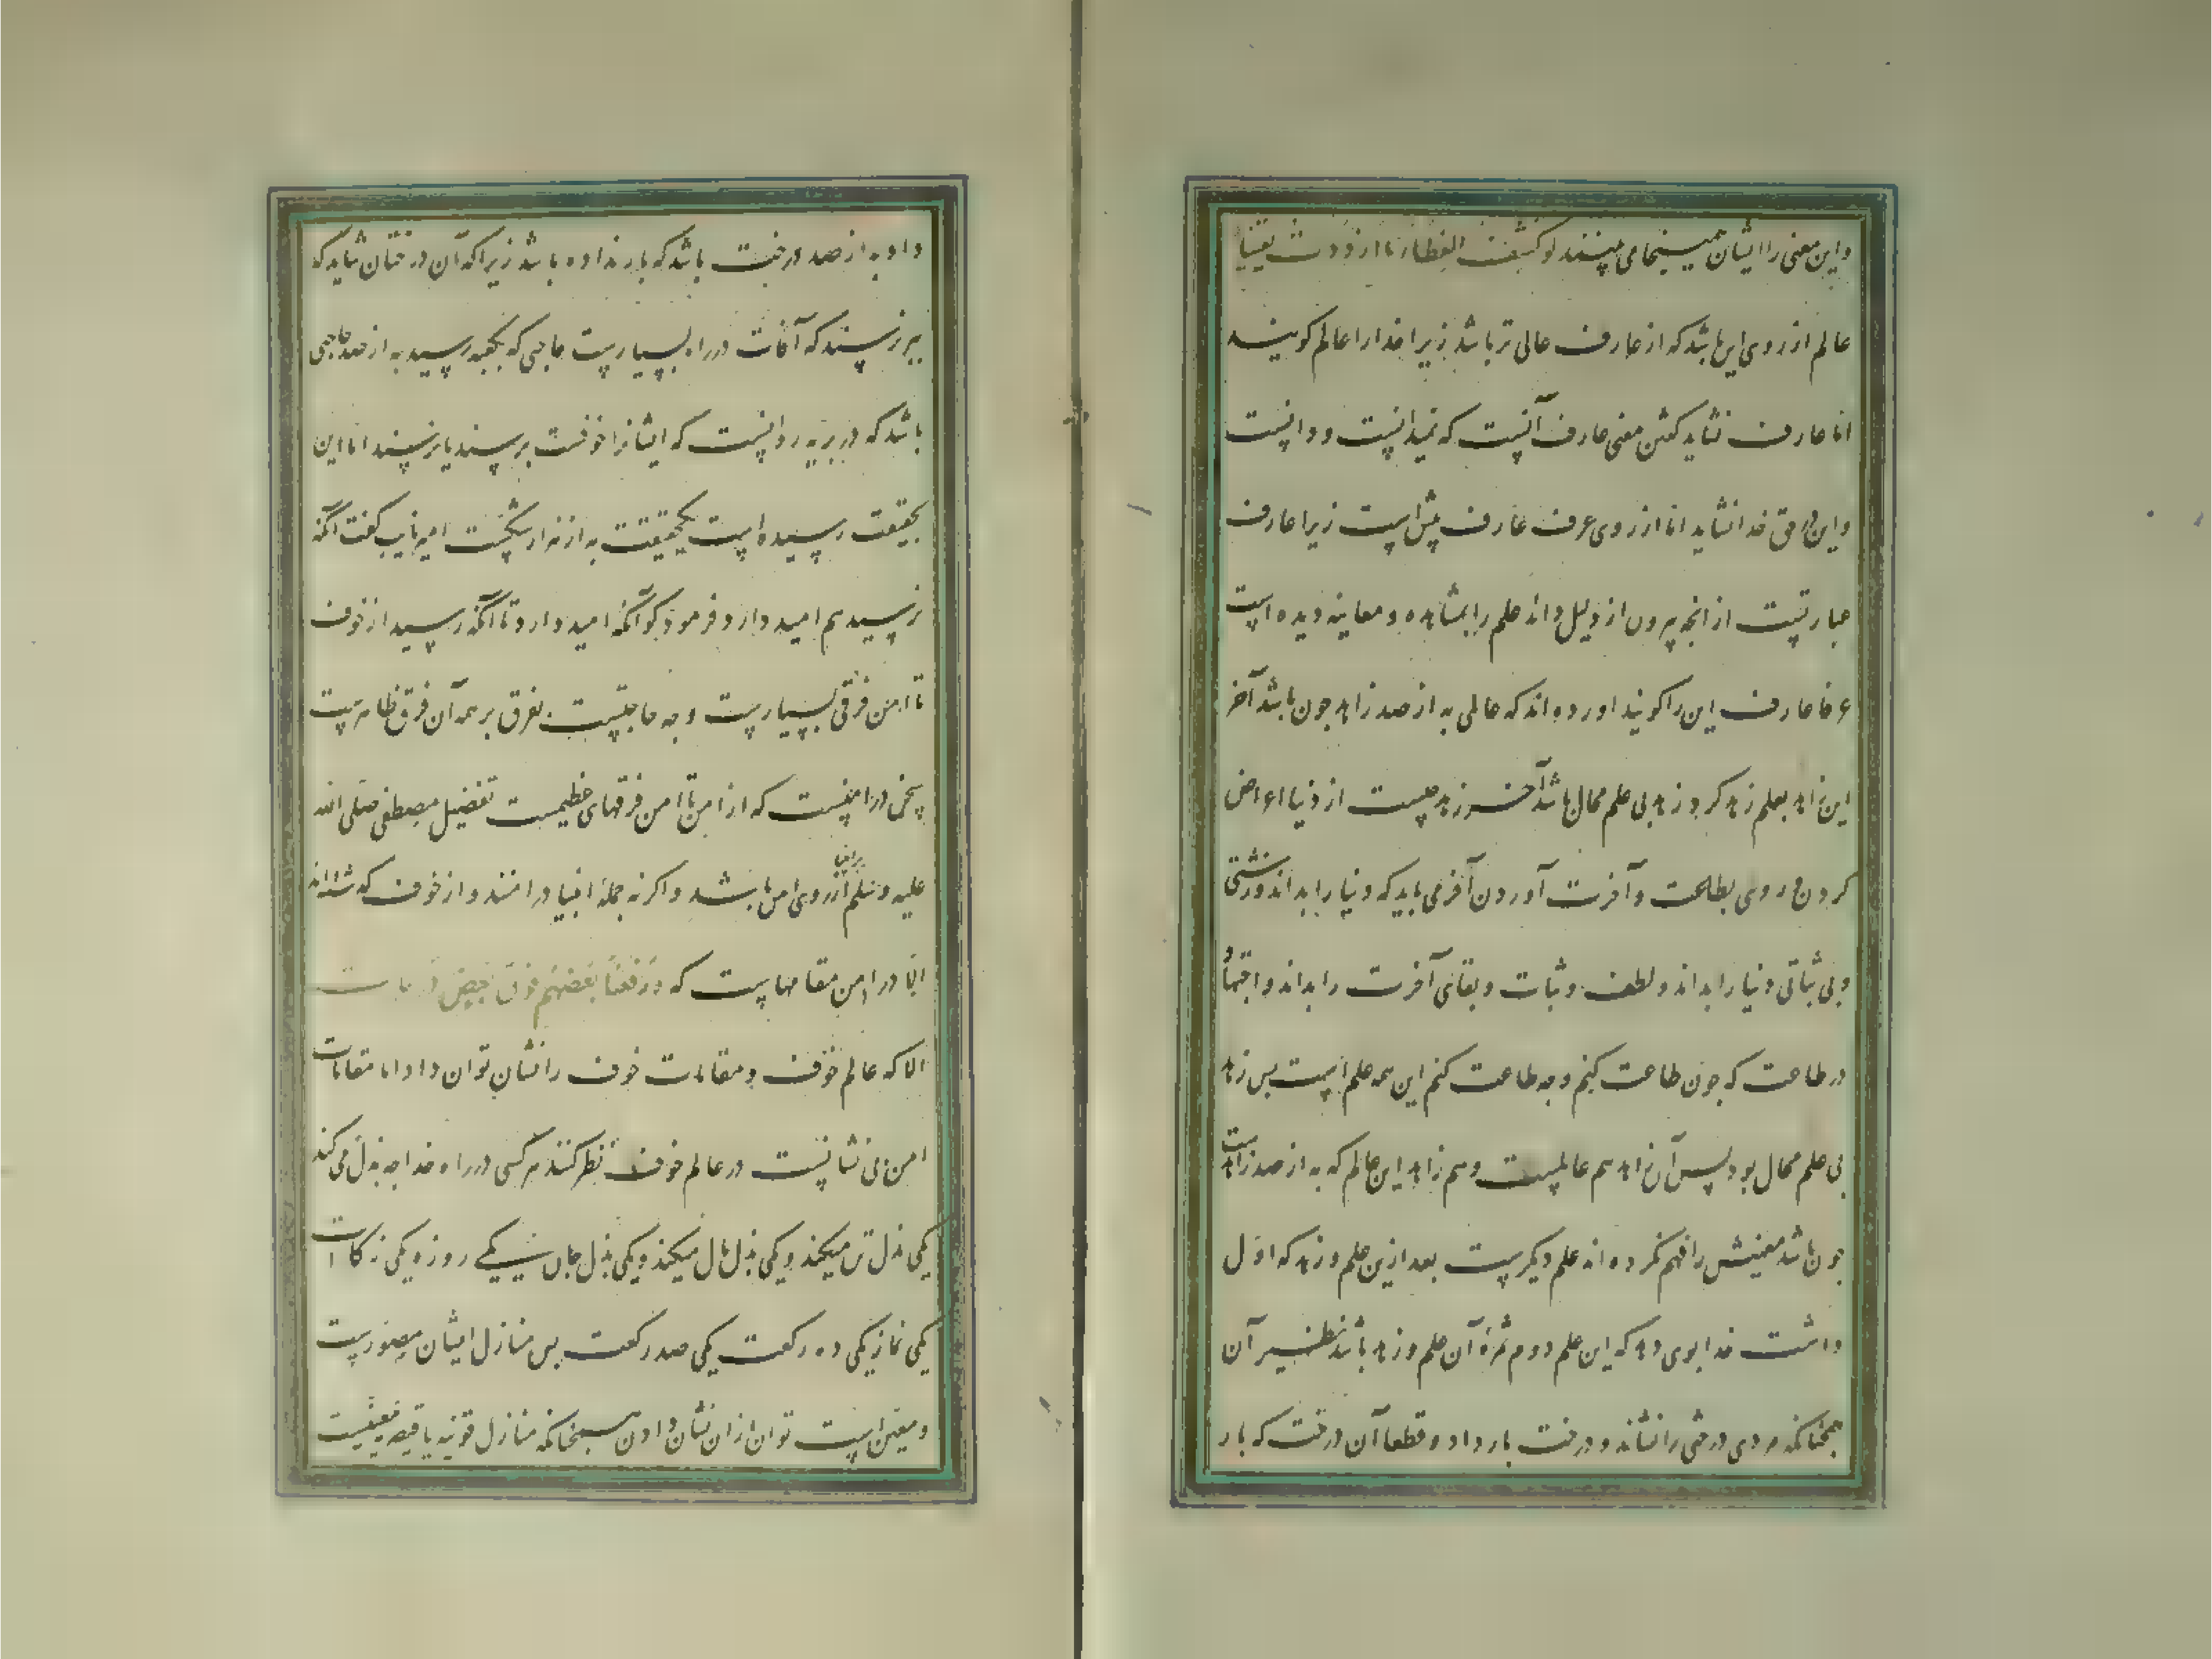 واین معنی را ایشان همینجا می بینند لو کشف الغطاء ما ازددت یقینا
عالم از روی این باشد که از عارف عالی تر باشد زیرا خدا را عالم کویند
اما عارف نشاید کفتن معنی عارف آنست که نمیدانست و دانست
واین در حق خدا نشاید اما از روی عرف عارف بیش است زیرا عارف
عبارتست از انچه بیرون از دلیل داند علم را بمشاهده و معاینه دیده است
عرفا عارف این را کویند اورده اند که عالمی به از صد زاهد جون باشد آخر
این زاهد بعلم زهد کرد و زهد بی علم محال باشد آخر زهد چیست از دنیا اعراض
کردن و روی بطاعت و آخرت آوردن آخر می باید که دنیا را بداند و زشتی
و بی ثباتی دنیا را بداند و لطف و ثبات و بقای آخرت را بداند و اجتهاد
در طاعت که جون طاعت کنم و جه طاعت کنم این همه علم است بس زهد
بی علم محال بود پس آن زاهد هم عالمست و هم زاهد این عالم که به از صد زاهدست
جون باشد معنیش را فهم نکرده اند علم دیکرست بعد ازین علم و زهد که اول
داشت خدا بوی دهد که این علم دوم ثمره آن علم و زهد باشد نظیر آن
همچنانکه مردی درختی را نشاند و درخت بار داد و قطعا آن درخت که بار
داد به از صد درخت باشد که بار نداده باشد زیرا که آن درختان شاید که
ببر نرسند که آفات در راه بسیارست حاجی که بکعبه رسید به از صد حاجی
باشد که در بریه روانست که ایشانرا خوفست برسند یا نرسند اما این
بحقیقت رسیده است یکحقیقت به از هزار شکست امیر نایب کفت آنکه
نرسید هم امید دارد فرمود کو آنکه امید دارد تا آنکه رسید از خوف
تا امن فرقی بسیارست و جه حاجتست بفرق بر همه آن فرق ظاهرست
سخن در امنست که از امن تا امن فرقهای عظیمست تفضیل مصطفی صلی الله
علیه و سلم بر انبیا از روی امن باشد و اکر نه جمله انبیا در امنند و از خوف کذشته‌اند
الا در امن مقامهاست که و رفعنا بعضهم فوق بعض درجات
الا که عالم خوف و مقامات خوف را نشان توان داد اما مقامات
امن بی نشانست در عالم خوف نظر کنند هر کسی در راه خدا جه بذل می کند
یکی بذل تن میکند و یکی بذل مال میکند و یکی بذل جان یکی روزه یکی زکات
یکی نماز یکی ده رکعت یکی صد رکعت بس منازل ایشان مصورست
و معین است توان از ان نشان دادن همچنانکه منازل قونیه یا قیصریه معینست